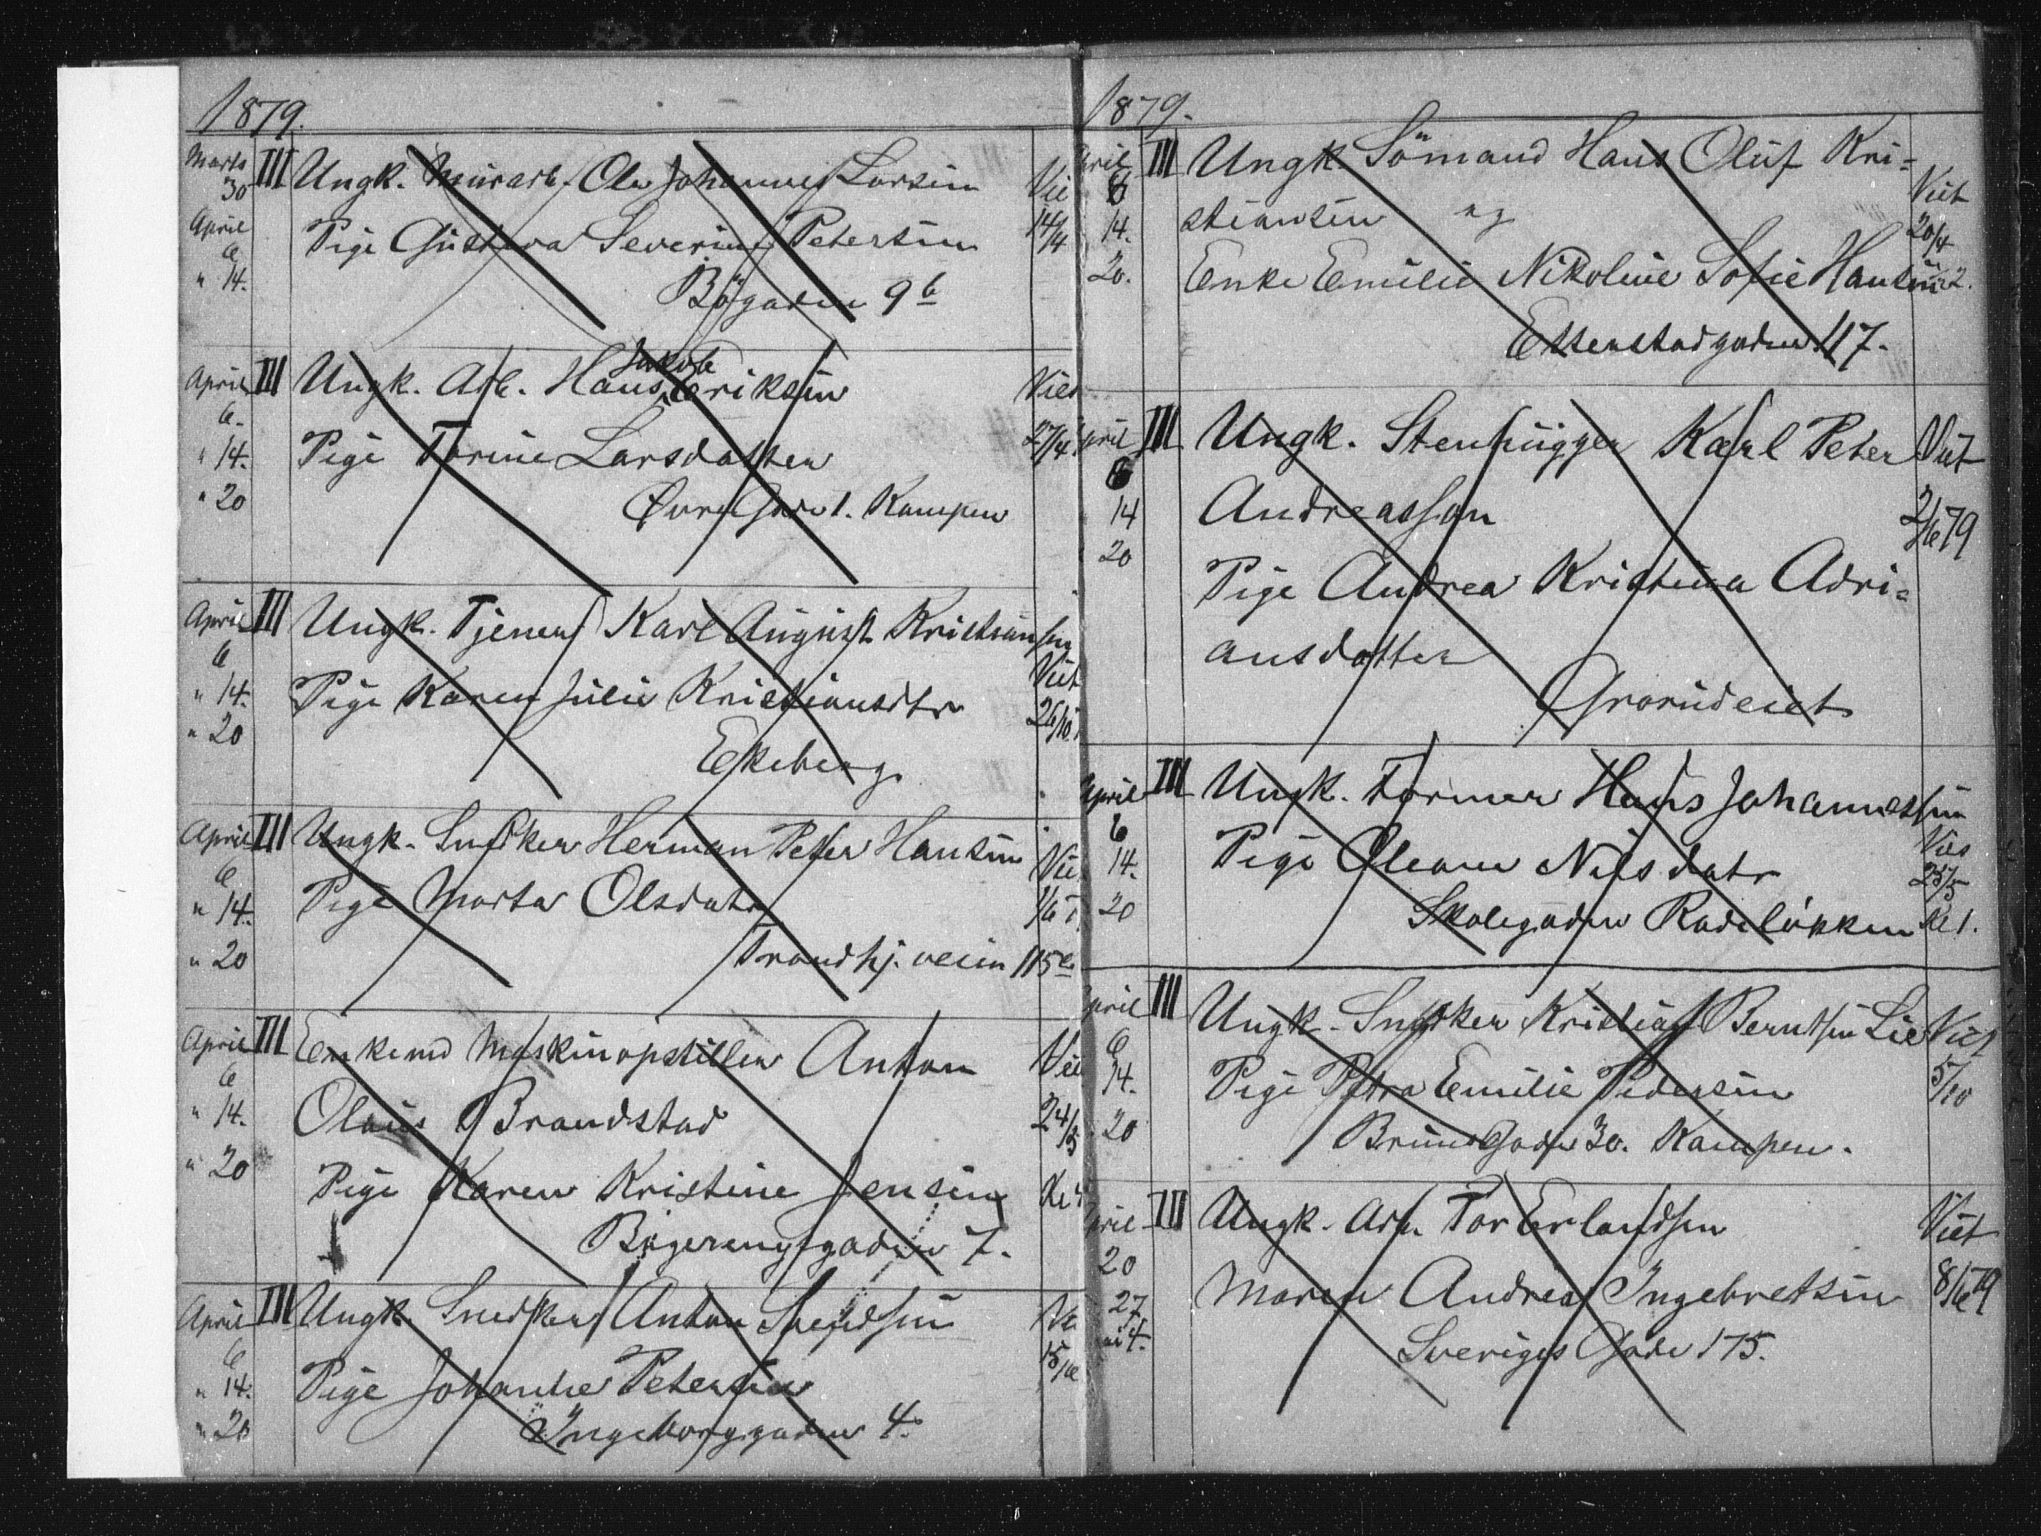 1879.
Marts 30 III Ungk. Murarb. Ole Johannes Larsen Vie
April 6 Pige Gustava Severine Petersen 14/4
" 14. Bögaden 9 b
April III Ungk. Arb. Hans Jakob Eriksen Viet
6. " 14. Pige Torine Larsdatter 27/4
" 20 Øvre Gade 1. Kampen
April III Ungk. Tjener Karl August Kristiansen
6 Viet
" 14. Pige Karen Julie Kristiansdtr 26/10
" 20 Ekeberg
April III Ungk. Snedker Herman Peter Hansen Vie
6 " 14. Pige Marta Olsdatr 1/6
" 20 Trondhj. veien 115 e
April III Enkemd Maskinopstiller Anton Vie
6 " 14. Olaus Brandstad 24/5
" 20 Pige Karen Kristine Jensen Kl
gaden 7.
April III Ungk. Snedker Anton Svendsen Vi
6 " 14. Pige Johanne Petersen 15/6
" 20 Ingeborggaden 4.
1879.
April III Ungk. Sömand Hans Oluf Kri-
6 Viet
14. stiansen og 20/4
20. Enke Emilie Nikoline Sofie Hansen 2.
Etterstadgaden 117.
April III Ungk. Stenhugger Karl Peter Viet
6 14 Andreasson 2/6 79
20 Pige Andrea Kristina Adri-
ansdatter
Grorudeiet
April III Ungk. Former Hans Johannessen
6 Vies
14. Pige Oleane Nilsdatr 25/5
20 Skolegaden Rodeløkken Kl 1.
April III Ungk. Snedker Kristian Berntsen Lie Viet
6 14. Pige Petra Emilie Pedersen 5/10
20 Bruns Gade 30. Kampen.
April III Ungk. Arb. Tor Erlandsen Viet
20 Maren Andrea Ingebretsen 8/6 79
27 Sveriges Gade 175.
Mai 4.